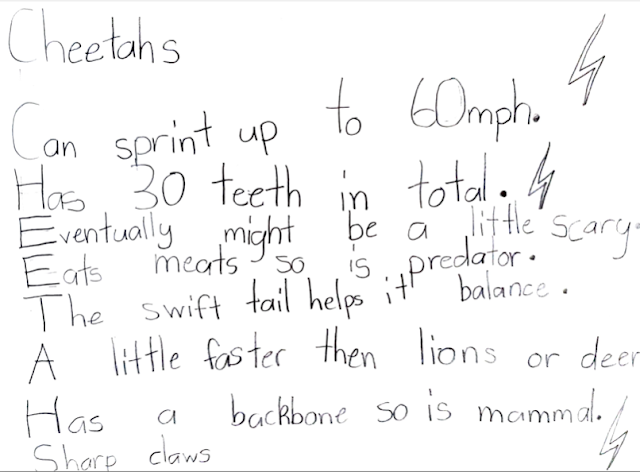 Cheetahs
Can sprint up to 60mph.
Has 30 teeth in total.
Eventually might be a little scary.
Eats meats so is predator.
The swift tail helps it balance.
A little faster then lions or deer
Has a backbone so is mammal.
Sharp claws